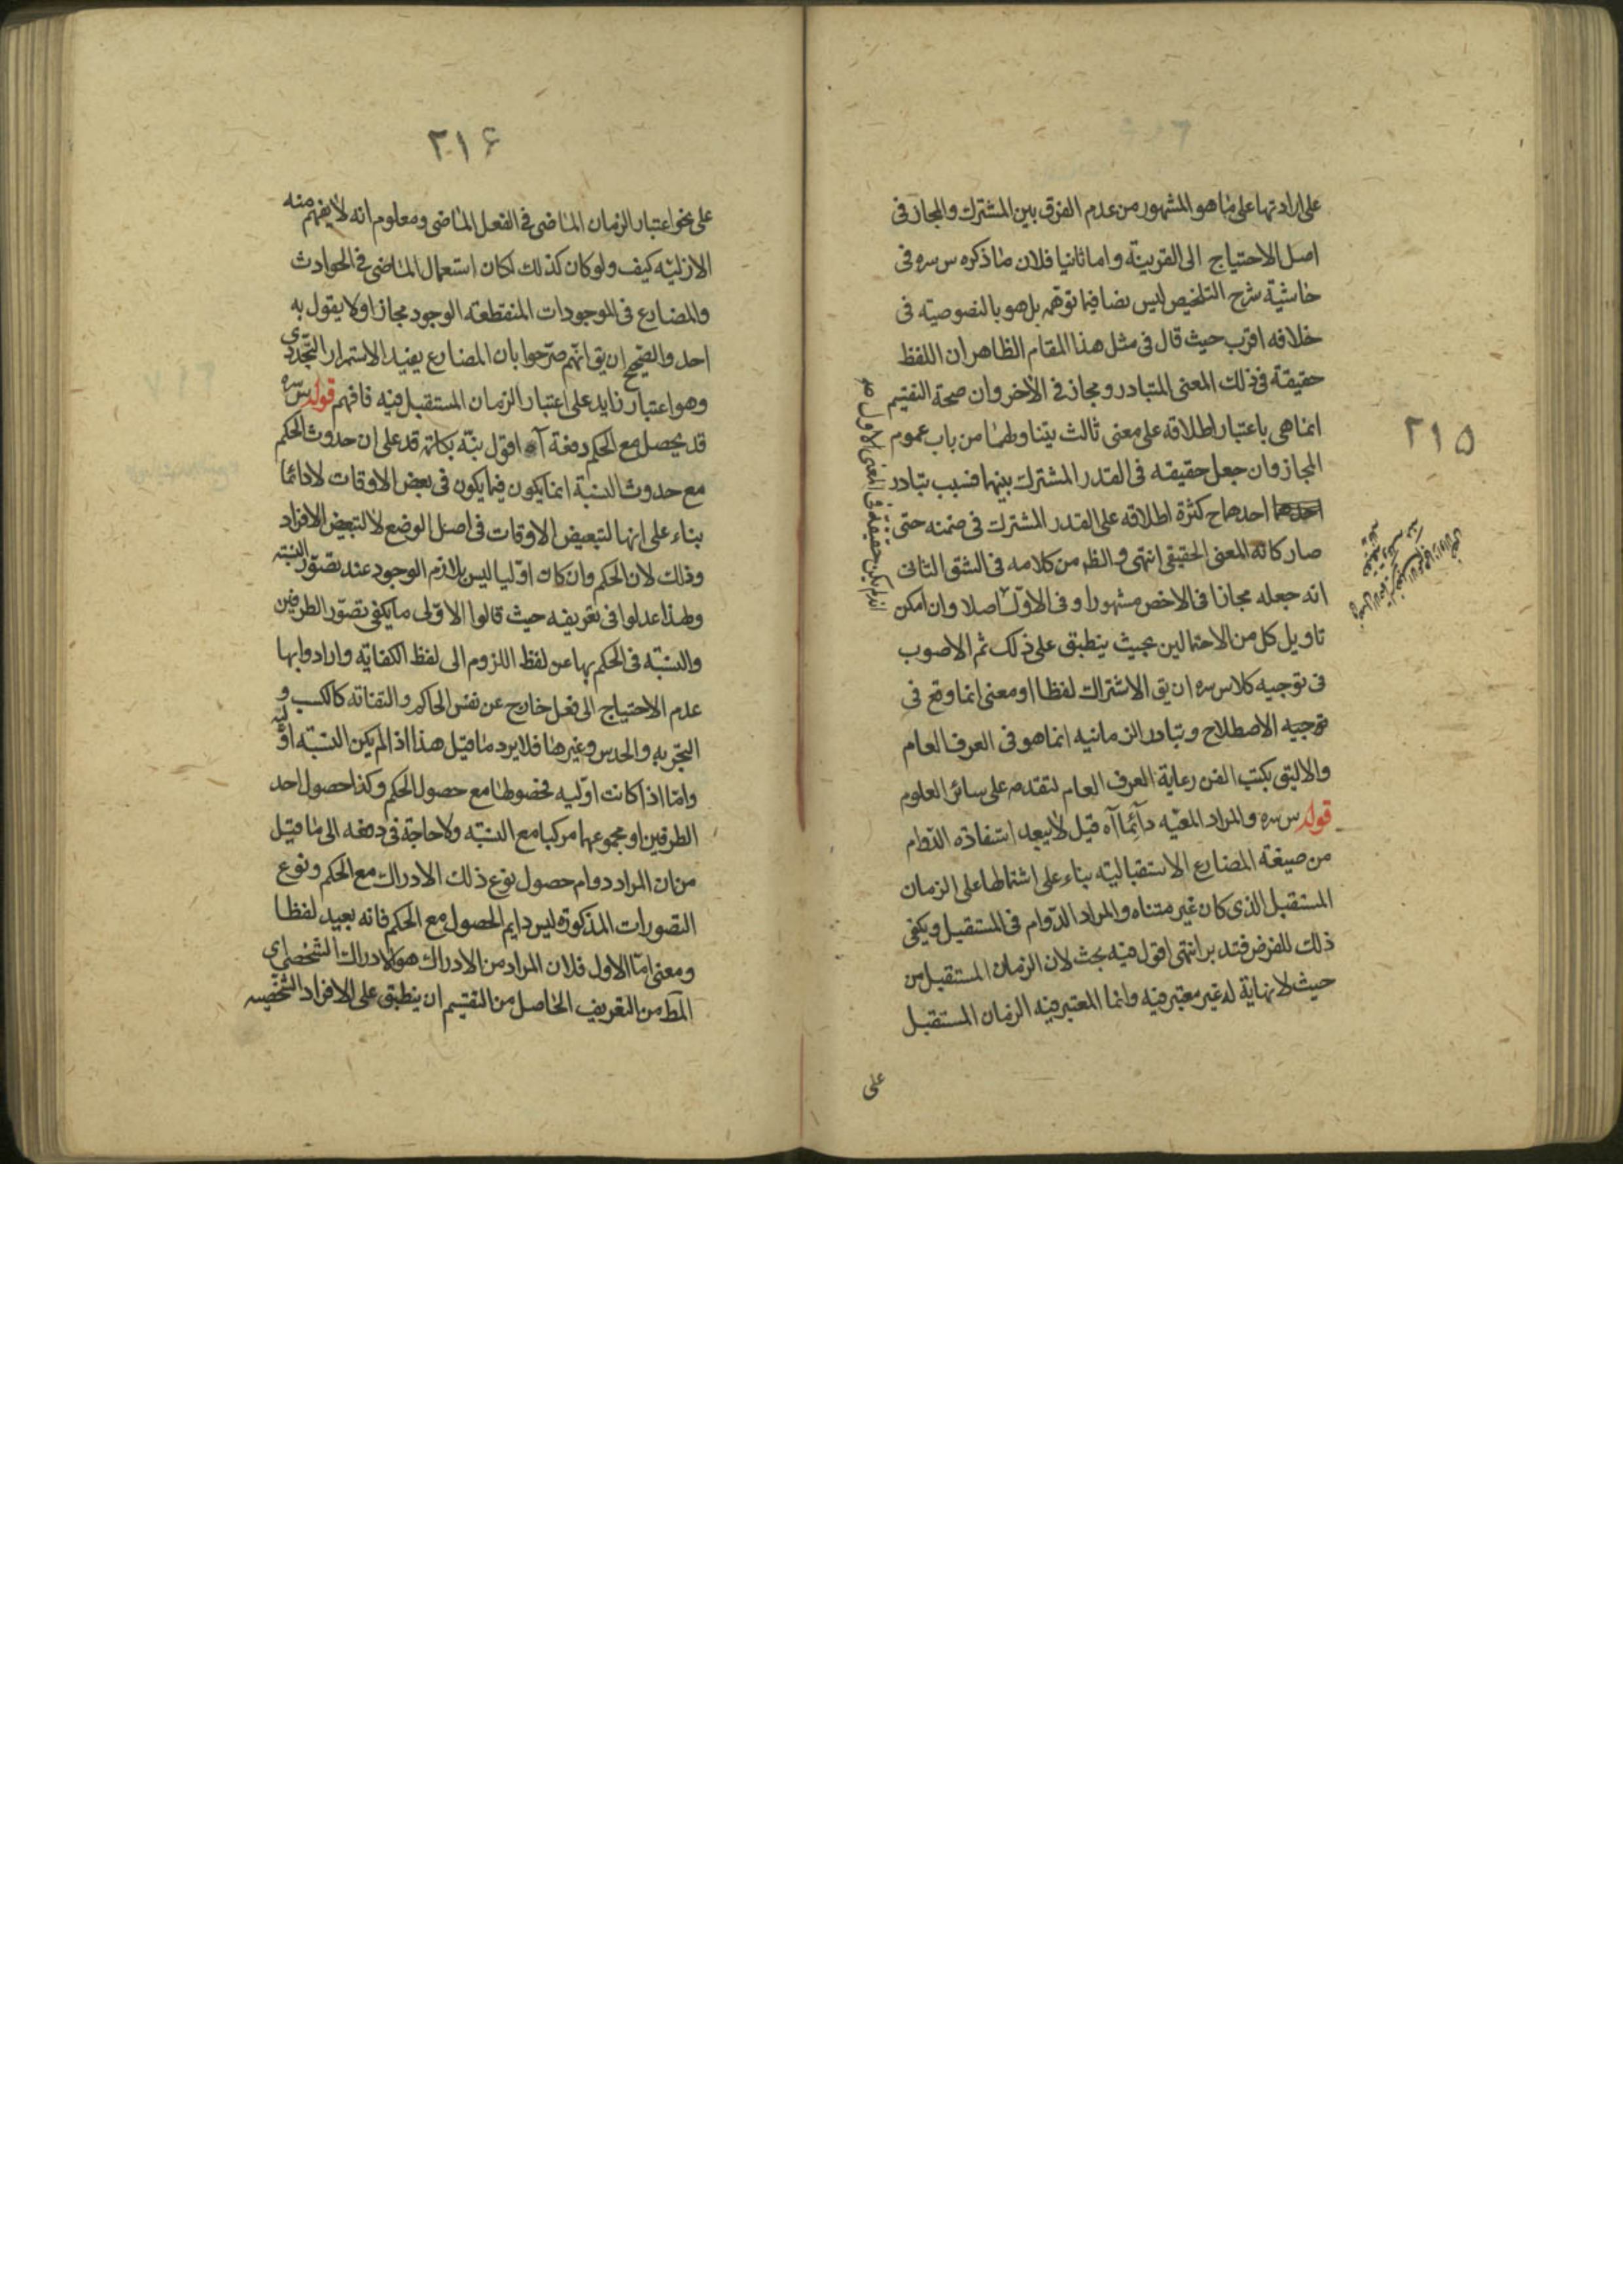 ٢١٥
على ارادتها على ما هو المشهور من عدم الفرق بين المشترك والمجاز فى
اصل الاحتياج الى القرينة واما ثانيا فلان ما ذكره س سره فى
حاشية شرح التلخيص ليس نصا فيما توهمه بل هو بالنصوصية فى
خلافه اقرب حيث قال فى مثل هذا المقام الظاهر ان اللفظ
حقيقة فى ذلك المعنى المتبادر ومجاز فى الاخر وان صحة التقسيم
انما هى باعتبار اطلاقه على معنى ثالث يتناولهما من باب عموم
المجاز وان جعل حقيقه فى القدر المشترك بينهما فسبب تبادر
احدهما ح كثرة اطلاقه على القدر المشترك فى ضمنه حتى
صار كانه المعنى الحقيقى انتهى والظ من كلامه فى الشق الثانى
انه جعله مجازا فى الاخص مشهورا وفى الاول اصلا وان امكن
تاويل كل من الاحتمالين بحيث ينطبق على ذلك ثم الاصوب
فى توجيه كلام س سره ان يق الاشتراك لفظا او معنى انما وقع فى
توجيه الاصطلاح وتبادر الزمانيه انما هو فى العرف العام
والاليق بكتب الفن رعاية العرف العام لتقدمه على سائر العلوم
قوله س سره والمراد المعيه دائما آه قيل لا يبعد استفادة الدوام
من صيغة المضارع الاستقباليته بناء على اشتمالها على الزمان
المستقبل الذى كان غير متناه والمراد الدوام فى المستقبل ويكفى
ذلك للفرض فتدبر انتهى اقول فيه بحث لان الزمان المستقبل من
حيث لا نهاية له غير معتبر فيه وانما المعتبر فيه الزمان المستقبل
على
٢١۶
على نحو اعتبار الزمان الماضى فى الفعل الماضى ومعلوم انه لا يفهم منه
الازليه كيف ولو كان كذلك لكان استعمال الماضى فى الحوادث
والمضارع فى الموجودات المنقطعه الوجود مجازا ولا يقول به
احد والصحيح ان يق انهم صرحوا بان المضارع يفيد الاستمرار التجددى
وهو اعتبار زايد على اعتبار الزمان المستقبل فيه فافهم قوله س سره
قد يحصل مع الحكم دفعة آه اقول نبه بكلمة قد على ان حدوث الحكم
مع حدوث النسبة انما يكون فيما يكون فى بعض الاوقات لا دائما
بناء على انها لتبعيض الاوقات فى اصل الوضع لا لتبعيض الافراد
وذلك لان الحكم وان كان اوليا ليس بلازم الوجود عند تصور النسبته
ولهذا عدلوا فى تعريفه حيث قالوا الاولى ما يكفى تصور الطرفين
والنسبته فى الحكم بها عن لفظ اللزوم الى لفظ الكفايه وارادوا بها
عدم الاحتياج الى فعل خارج عن نفس الحاكم والتفاته كالكسب و
التجربه والحدس وغيرها فلا يرد ما قيل هذا اذا لم يكن النسبته اوليه
واما اذا كانت اوليه فحصولها مع حصول الحكم وكذا حصول احد
الطرفين او مجموعهما مركبا مع النسبته ولا حاجة فى دفعه الى ما قيل
من ان المراد دوام حصول نوع ذلك الادراك مع الحكم ونوع
التصورات المذكورة ليس دايم الحصول مع الحكم فانه بعيد لفظا
ومعنى اما الاول فلان المراد من الادراك هو الادراك الشخصى اى
المط من التعريف الحاصل من التقسيم ان ينطبق على الافراد الشخصيه